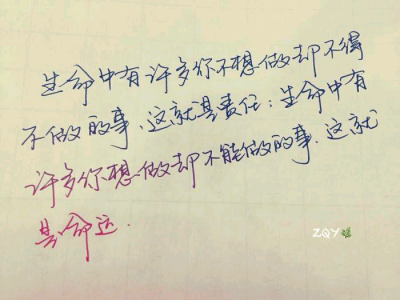 生命中有许多你不想做却不得
不做的事.这就是责任;生命中有
许多你想做却不能做的事.这就
是命运.
ZQY